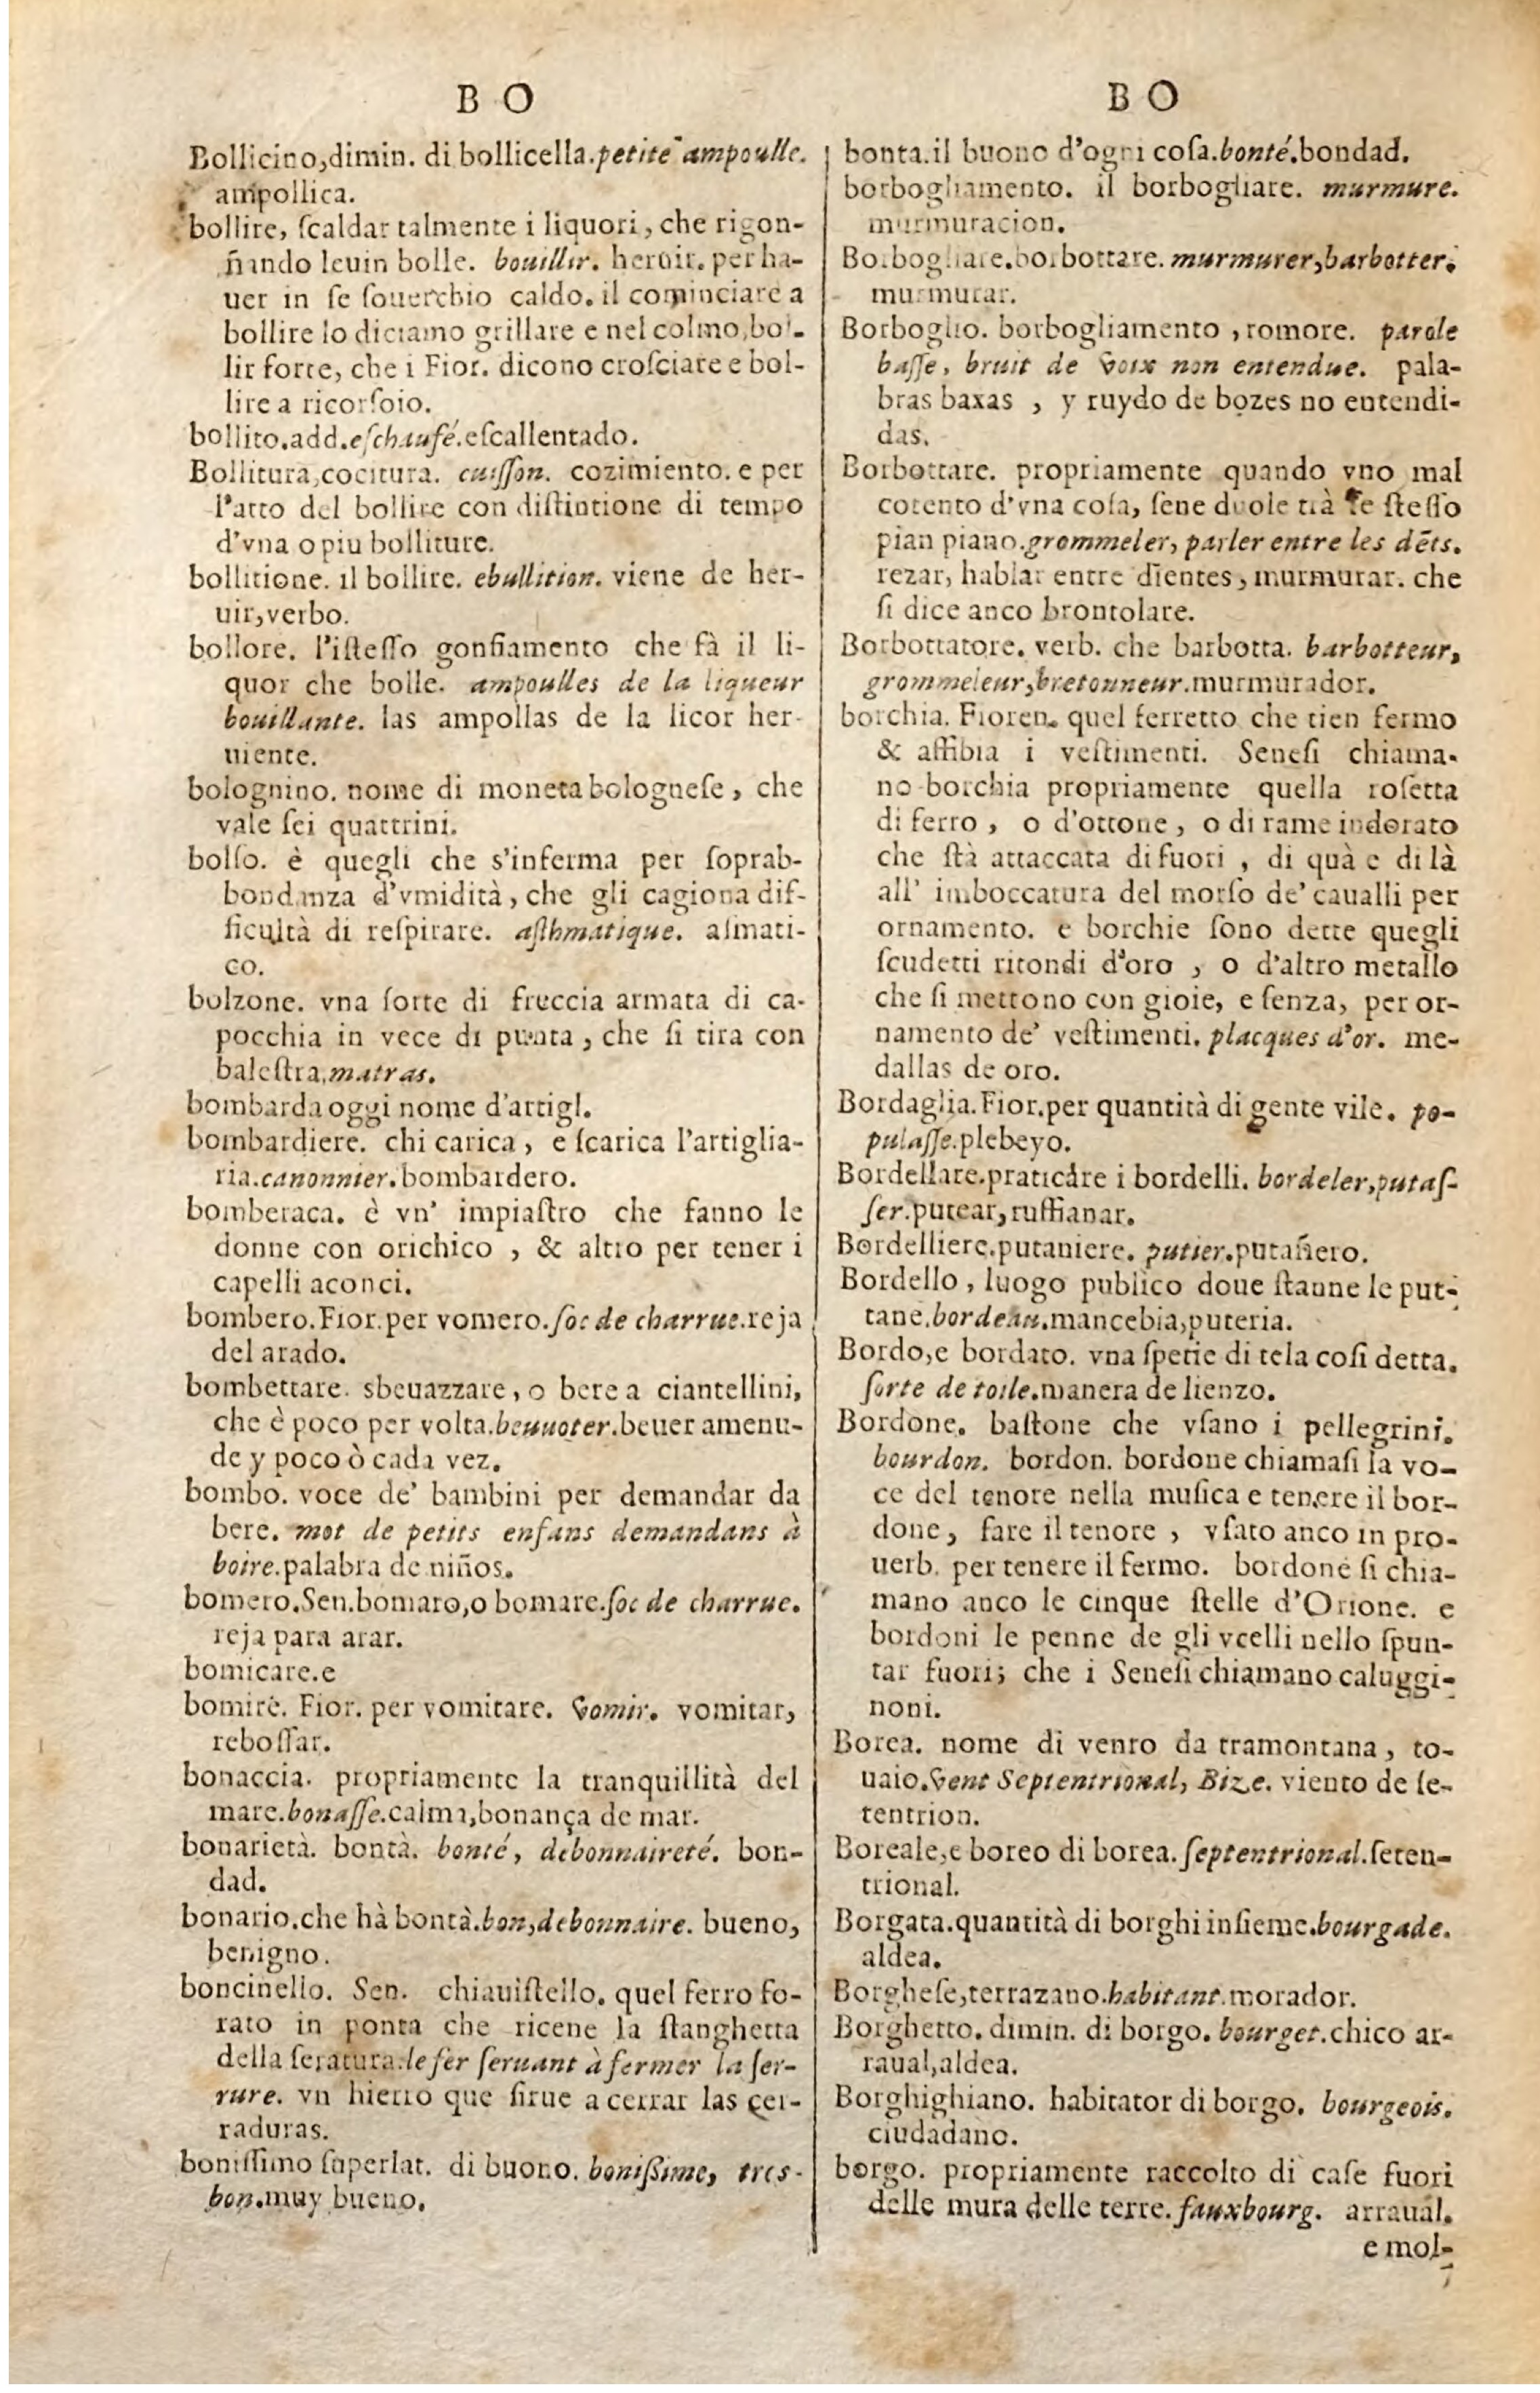 B O
Bollicino,dimin. di bollicella.petite ampoulle.
ampollica.
bollire, ſcaldar talmente i liquori, che rigon-
fiando leuin bolle. bouillir. heruir. per ha-
uer in ſe ſouerchio caldo. il cominciare a
bollire lo diciamo grillare e nel colmo, bol-
lir forte, che i Fior. dicono croſciare e bol-
lire a ricorſoio.
bollito.add.eſchaufé.eſcallentado.
Bollitura,cocitura. cuiſſon. cozimiento. e per
l'atto del bollire con diſtintione di tempo
d'vna o piu bolliture.
bollitione. il bollire. ebullition. viene de her-
uir,verbo.
bollore. l'iſteſſo gonfiamento che fà il li-
quor che bolle. ampoulles de la liqueur
bouillante. las ampollas de la licor her-
uiente.
bolognino. nome di moneta bologneſe, che
vale ſei quattrini.
bolſo. è quegli che s'inferma per ſoprab-
bondanza d'vmidità, che gli cagiona dif-
ficultà di reſpirare. aſthmatique. aſmati-
co.
bolzone. vna ſorte di freccia armata di ca-
pocchia in vece di punta, che ſi tira con
baleſtra,matras.
bombarda oggi nome d'artigl.
bombardiere. chi carica, e ſcarica l'artiglia-
ria.canonnier.bombardero.
bomberaca. è vn' impiaſtro che fanno le
donne con orichico, & altro per tener i
capelli aconci.
bombero.Fior.per vomero.ſoc de charrue.reja
del arado.
bombettare. sbeuazzare, o bere a ciantellini,
che è poco per volta.beuuoter.beuer amenu-
de y poco ò cada vez.
bombo. voce de' bambini per demandar da
bere. mot de petits enfans demandans à
boire.palabra de niños.
bomero.Sen.bomaro,o bomare.ſoc de charrue.
reja para arar.
bomicare.e
bomire. Fior. per vomitare. vomir. vomitar,
reboſſar.
bonaccia. propriamente la tranquillità del
mare.bonaſſe.calma,bonança de mar.
bonarietà. bontà. bonté, debonnaireté. bon-
dad.
bonario.che hà bontà.bon,debonnaire. bueno,
benigno.
boncinello. Sen. chiauiſtello. quel ferro fo-
rato in ponta che riceue la ſtanghetta
della ſeratura.le fer ſeruant à fermer la ſer-
rure. vn hierro que ſirue a cerrar las cer-
raduras.
boniſſimo ſuperlat. di buono. boniſſime, tres-
bon.muy bueno.
B O
bonta.il buono d'ogni coſa.bonté.bondad.
borbogliamento. il borbogliare. murmure.
murmuracion.
Borbogliare.borbottare. murmurer,barbotter.
murmurar.
Borboglio. borbogliamento, romore. parole
baſſe, bruit de voix non entendue. pala-
bras baxas, y ruydo de bozes no entendi-
das.
Borbottare. propriamente quando vno mal
cotento d'vna coſa, ſene duole trà ſe ſteſſo
pian piano.grommeler, parler entre les dēts.
rezar, hablar entre dientes, murmurar. che
ſi dice anco brontolare.
Borbottatore. verb. che barbotta. barbotteur,
grommeleur,bretonneur.murmurador.
borchia. Fioren. quel ferretto che tien fermo
& affibia i veſtimenti. Seneſi chiama-
no borchia propriamente quella roſetta
di ferro, o d'ottone, o di rame indorato
che ſtà attaccata di fuori, di quà e di là
all' imboccatura del morſo de' caualli per
ornamento. e borchie ſono dette quegli
ſcudetti ritondi d'oro, o d'altro metallo
che ſi mettono con gioie, e ſenza, per or-
namento de' veſtimenti. placques d'or. me-
dallas de oro.
Bordaglia.Fior.per quantità di gente vile. po-
pulaſſe.plebeyo.
Bordellare.praticare i bordelli. bordeler,putaſ-
ſer.putear,ruffianar.
Bordelliere.putaniere. putier.putañero.
Bordello, luogo publico doue ſtanne le put-
tane.bordeau.mancebia,puteria.
Bordo,e bordato. vna ſpetie di tela coſi detta.
ſorte de toile.manera de lienzo.
Bordone. baſtone che vſano i pellegrini.
bourdon. bordon. bordone chiamaſi la vo-
ce del tenore nella muſica e tenere il bor-
done, fare il tenore, vſato anco in pro-
uerb. per tenere il fermo. bordone ſi chia-
mano anco le cinque ſtelle d'Orione. e
bordoni le penne de gli vcelli nello ſpun-
tar fuori; che i Seneſi chiamano caluggi-
noni.
Borea. nome di vento da tramontana, to-
uaio.vent Septentrional, Bize. viento de ſe-
tentrion.
Boreale,e boreo di borea.ſeptentrional.ſeten-
trional.
Borgata.quantità di borghi inſieme.bourgade.
aldea.
Borgheſe,terrazano.habitant.morador.
Borghetto. dimin. di borgo. bourget.chico ar-
raual,aldea.
Borghighiano. habitator di borgo. bourgeois.
ciudadano.
borgo. propriamente raccolto di caſe fuori
delle mura delle terre.fauxbourg. arraual.
e mol-